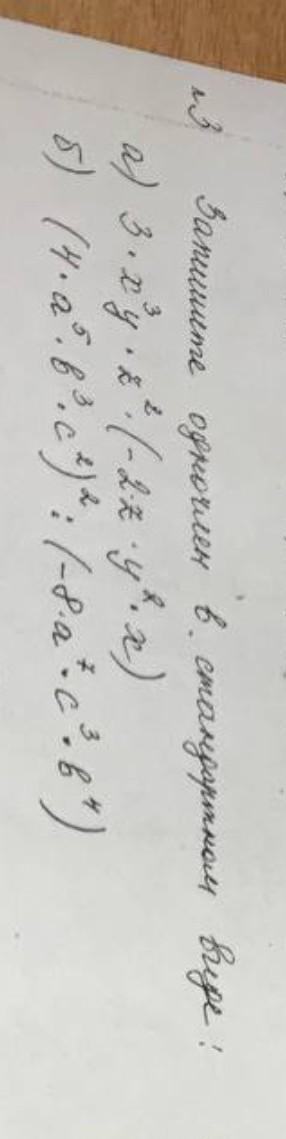 №3 Запишите одночлен в стандартном виде:
а) 3·x³y·z²·(-2·z·y²·x)
б) (4·a⁵·b³·c²)²:(-8·a⁷·c³·b⁴)